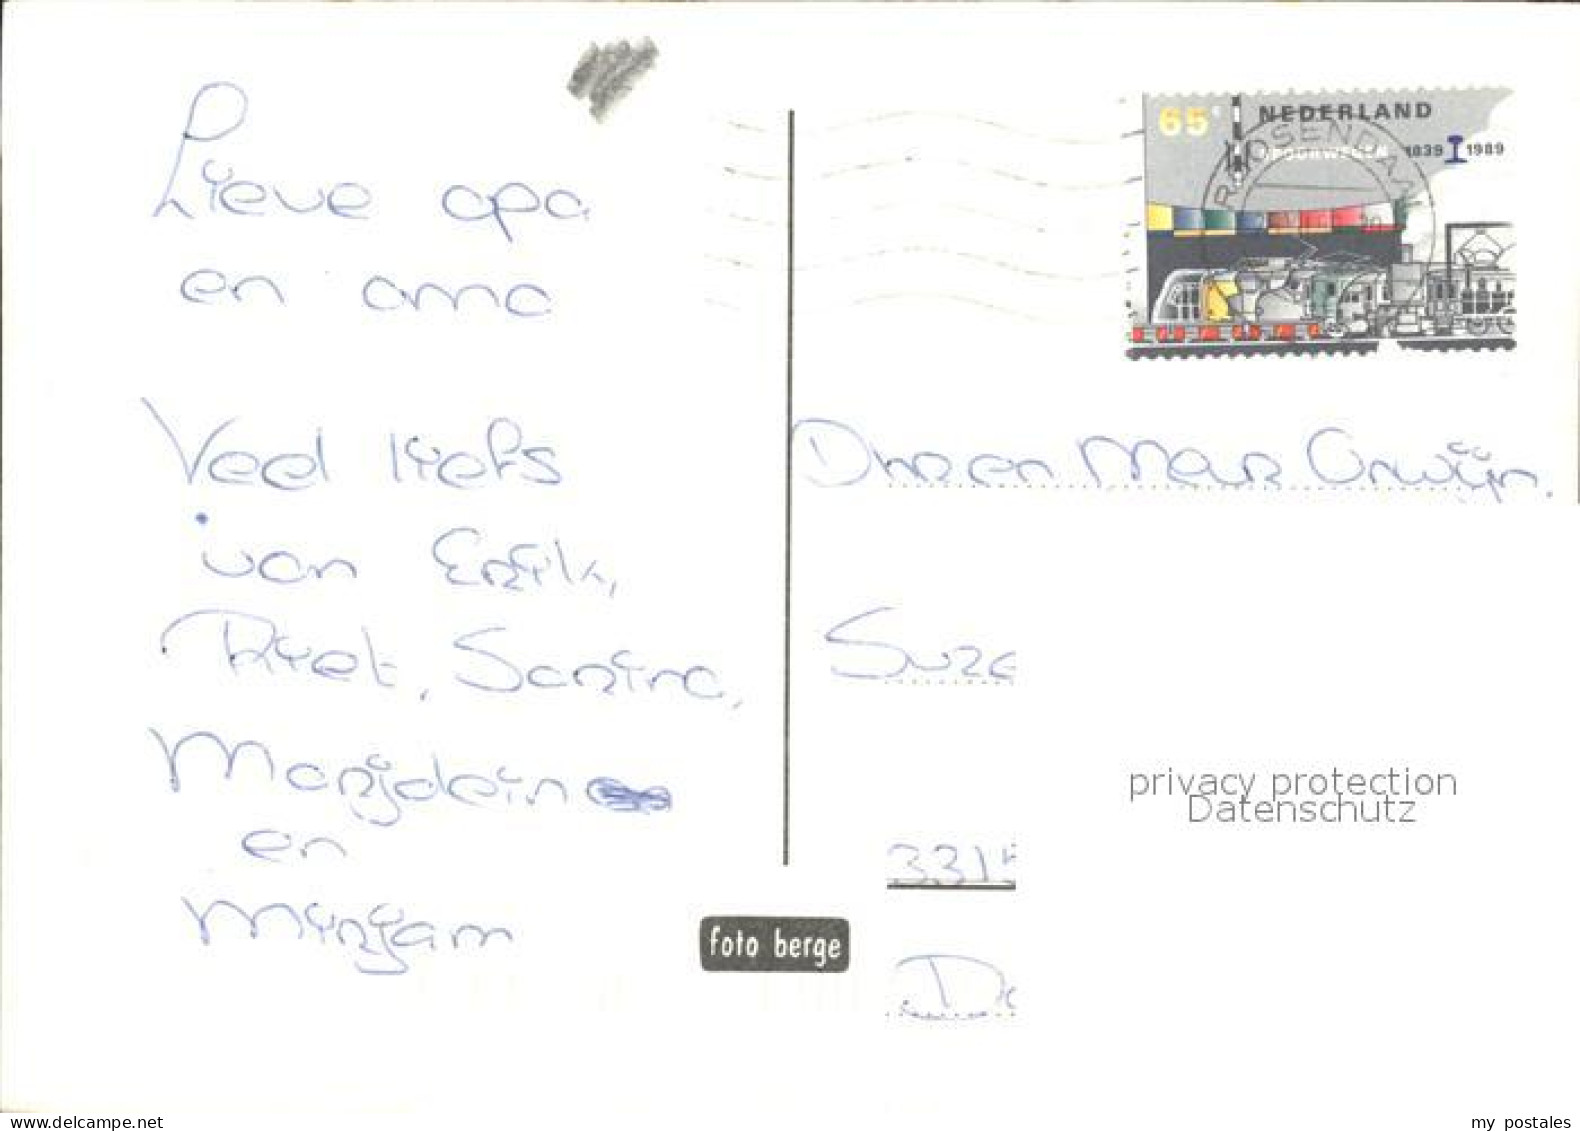 Lieve opa
en oma
Veel liefs
van Erik,
Riet, Sarina,
Marjolein
en
Mirjam
foto berge
65 NEDERLAND
SPOORWEGEN 1839 1989
ROSENDAAL
Dhr en Mevr Onwijn.
3315
privacy protection
Datenschutz
www.delcampe.net
my postales